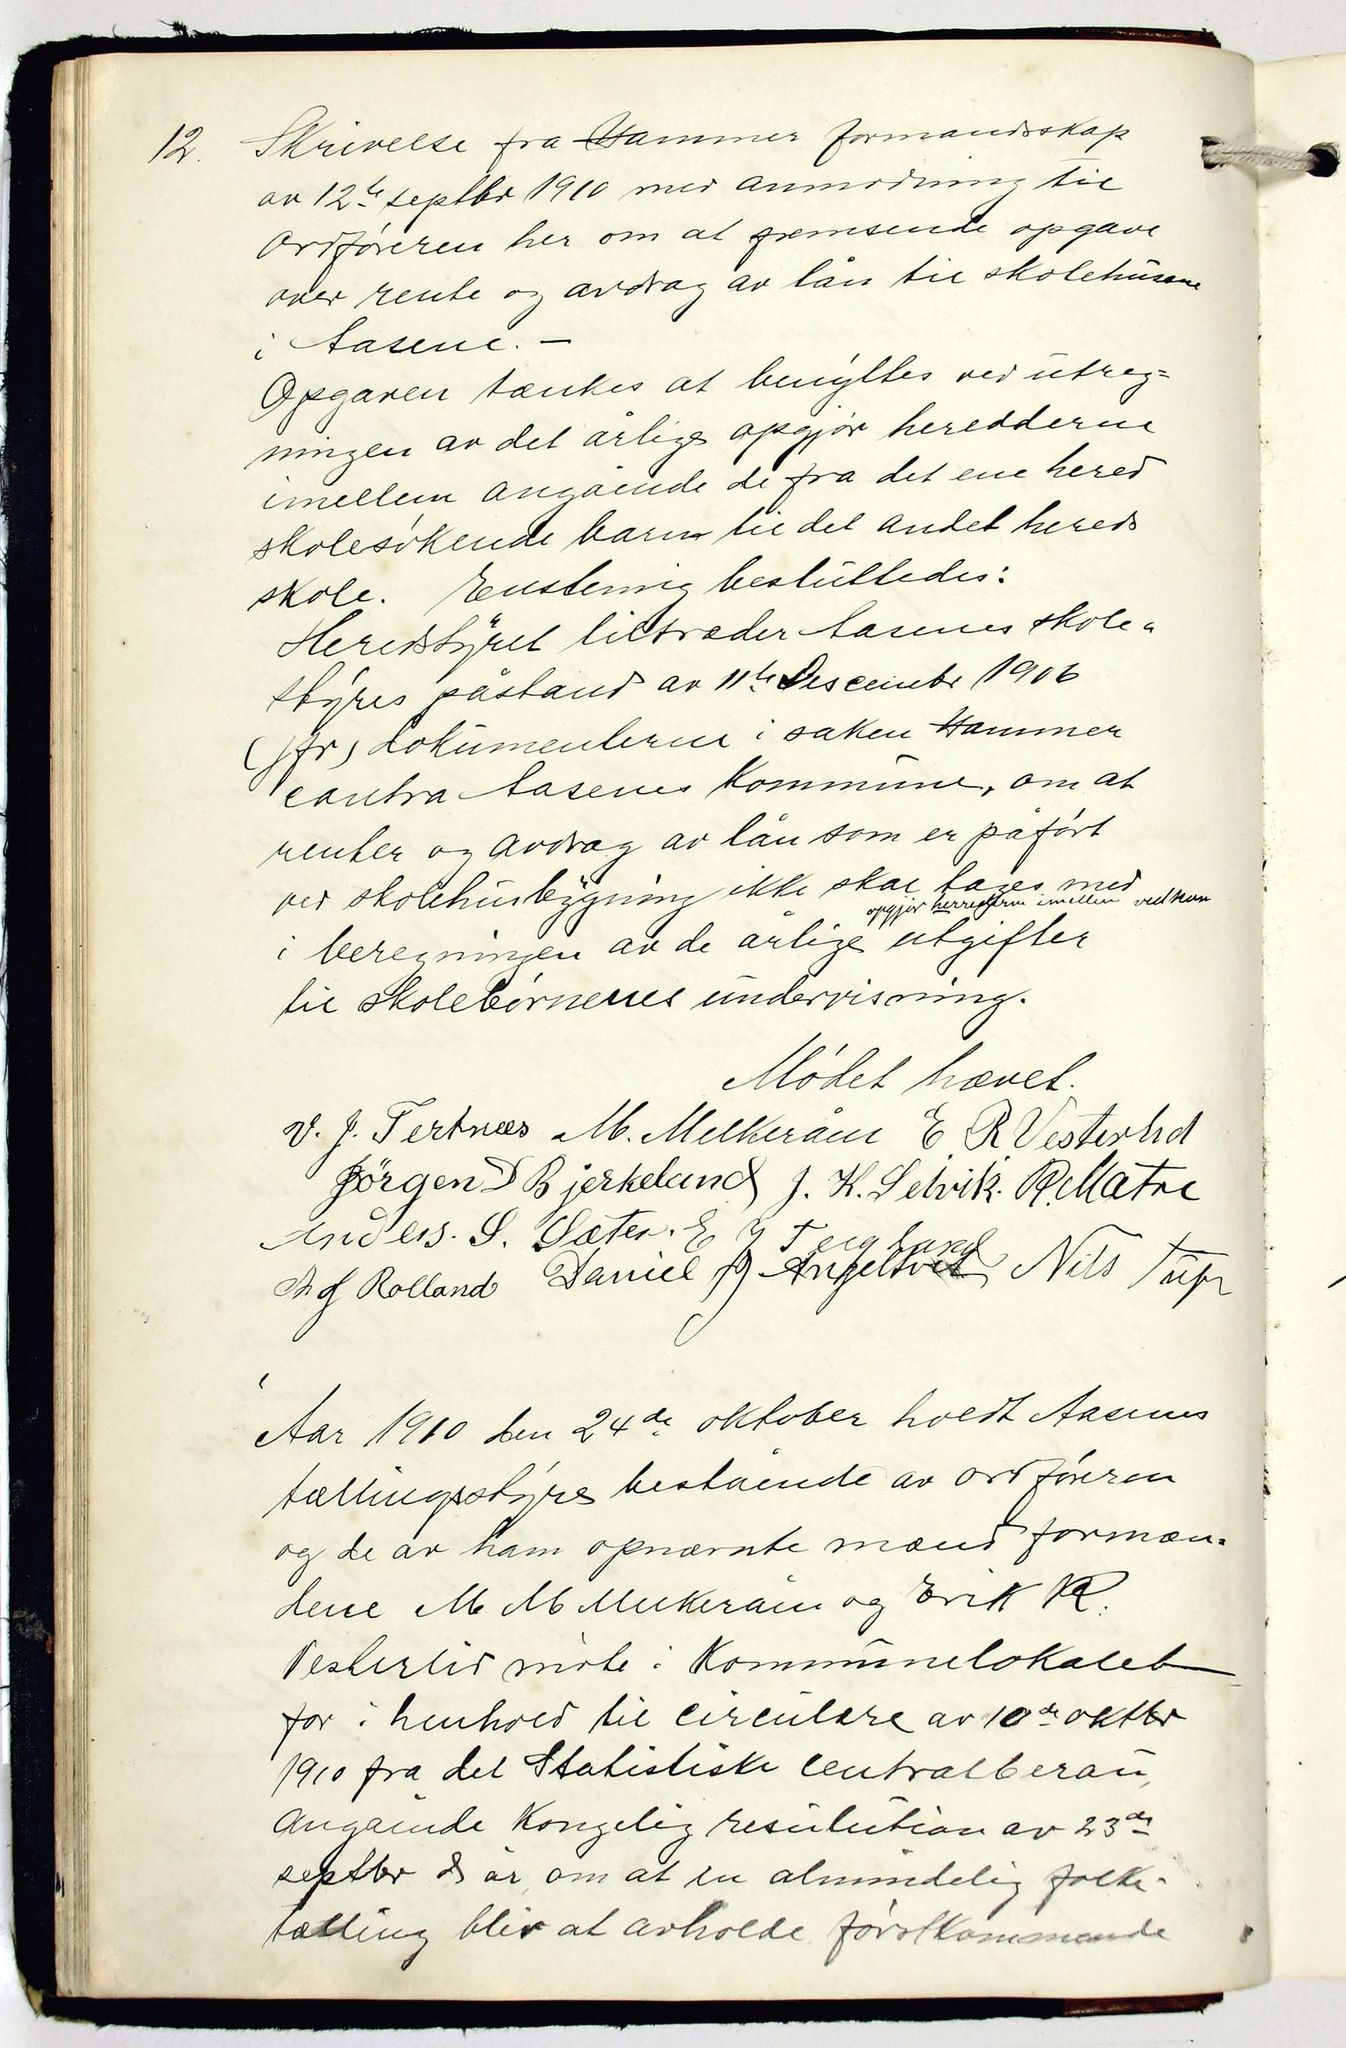 12. Skrivelse fra Hammer formandsskap
av 12te septbr 1910 med anmodning til
Ordföreren her om at fremsende opgave
over rente og avdrag av lån til skolehusene
i Aasene. —
Opgaven tænkes at benyttes ved utreg=
ningen av det årlige opgjör heredderne
imellem angående de fra det ene hered
skolesökende barn til det andet hereds
skole. Enstemig besluttedes:
Heredstyret tiltræder Aasenes skole=
styres påstand av 11te Descembr 1906
(jfr) dokumenterne i saken Hammer
contra Aasenes Kommune, om at
renter og avdrag av lån som er påfört
ved skolehusbygning ikke skal tages med
opgjör herrederne imellem ved
i beregningen av de årlige utgifter
til skolebörnenes undervisning.
Mödet hævet.
V. J. Tertnæs M. Melkeråen E R Vesterlid
Jörgen D Bjerkeland J. K. Selvik. R. Matre
Anders. S. Sæter. E J Teigland
Rolland Daniel J Angeltveit Nils
Aar 1910 den 24de oktober holdt Aasenes
tællingsstyre bestående av ordföreren
og de av ham opnævnte mænd formæn=
dene M M Melkeråen og Erik R.
Vesterlid möte i Kommunelokalet
for i henhold til circulære av 10de oktbr
1910 fra det Statistiske centralberau,
angående Kongelig resulution av 23de
septbr d år, om at en almindelig folke-
tælling blir at avholde förstkommende